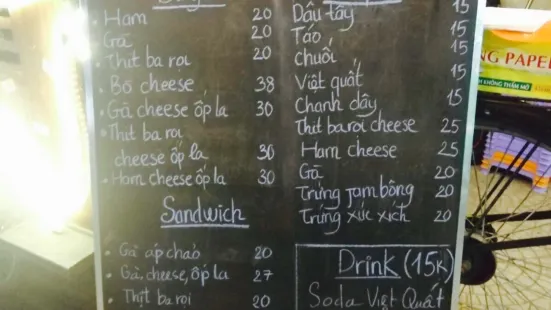 • Ham 20
• Gà 20
• Thịt ba rọi 20
• Bò cheese 38
• Gà cheese ốp la 30
• Thịt ba rọi
cheese ốp la 30
• Ham cheese ốp la 30
Sandwich
• Gà áp chảo 20
• Gà, cheese, ốp la 27
• Thịt ba rọi 20
Dâu tây 15
Táo 15
Chuối 15
Việt quất 15
Chanh dây 15
Thịt ba rọi cheese 25
Ham cheese 25
Gà 20
Trứng jambông 20
Trứng xúc xích 20
Drink (15K)
Soda Việt Quất
NG PAPER
KHÔNG THẤM MỠ